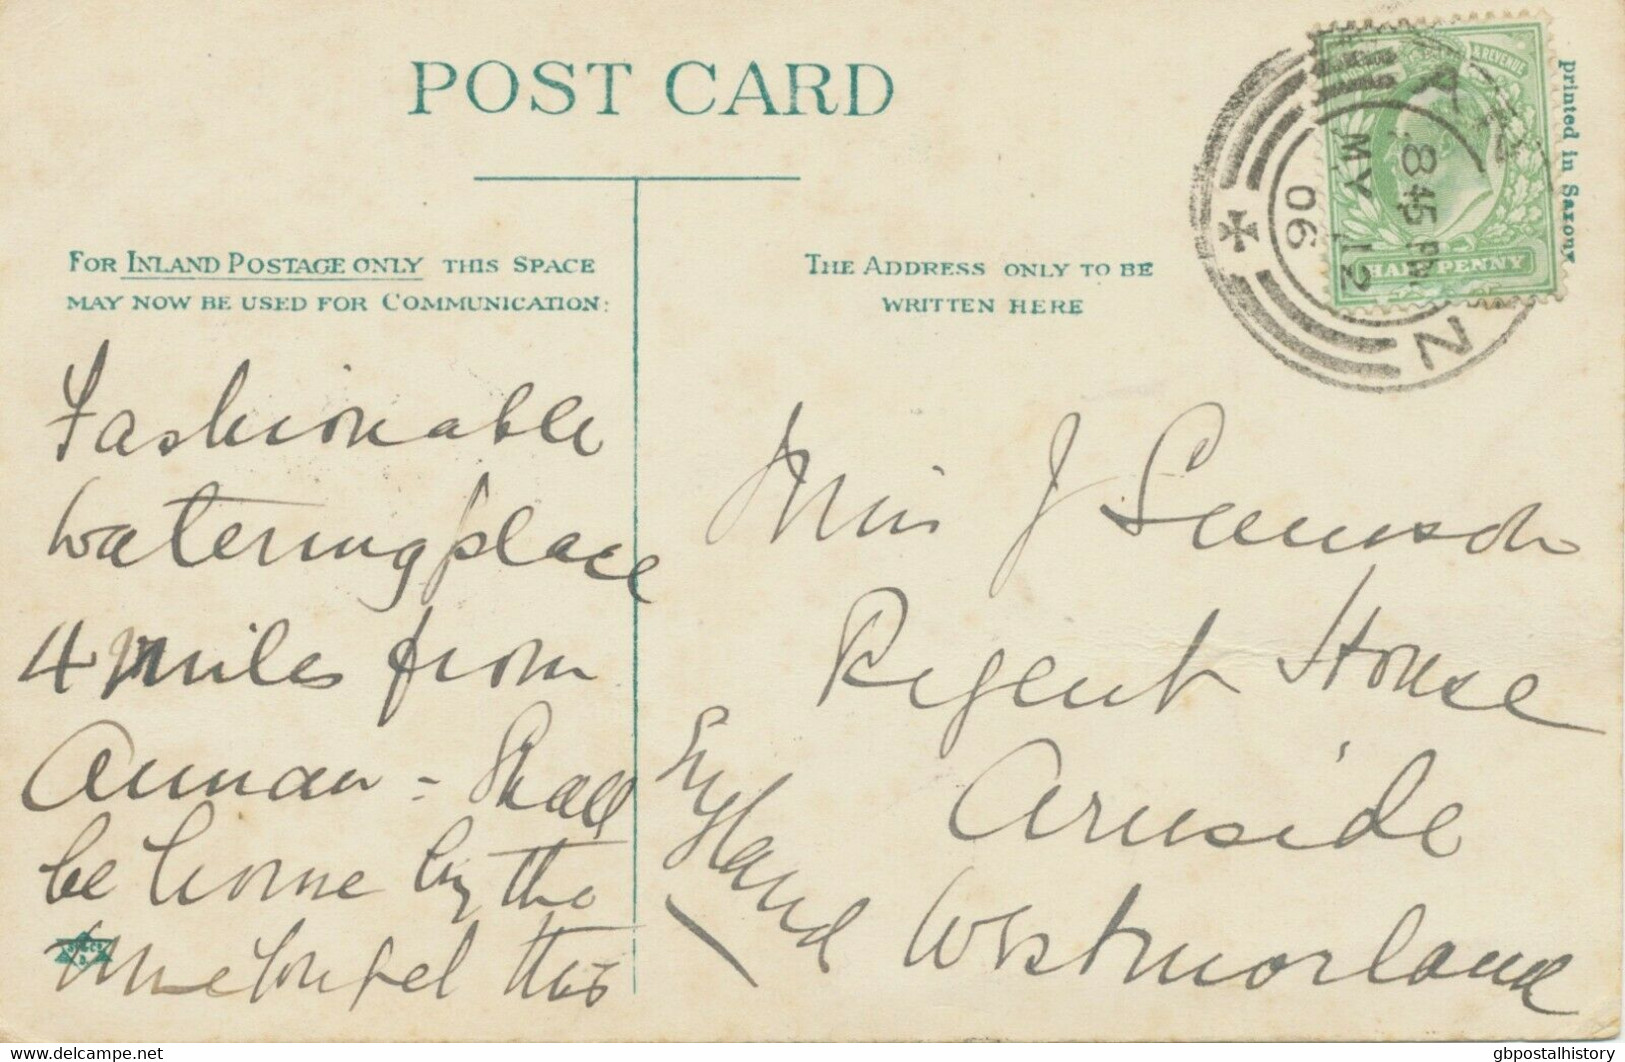 POST CARD
printed in Saxony
FOR INLAND POSTAGE ONLY THIS SPACE
MAY NOW BE USED FOR COMMUNICATION:
THE ADDRESS ONLY TO BE
WRITTEN HERE
& REVENUE
HALFPENNY
8 45 PM
MY 12
06
N
Fashionable
watering place
4 miles from
Annan - Shall
be home by the
time you get this
Miss J
Regent House
Arnside
Westmorland
England
www.delcampe.net
gbpostalhistory